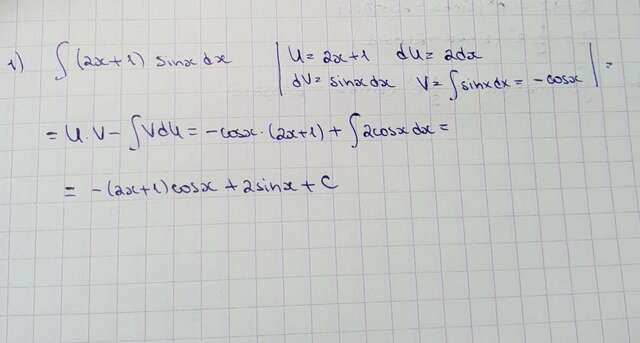 1) ∫(2x+1) sinx dx | U = 2x+1 dU = 2dx
dV = sinx dx V = ∫sinxdx = -cosx | =
= U·V - ∫VdU = -cosx·(2x+1) + ∫2cosx dx =
= -(2x+1)cosx + 2sinx + C